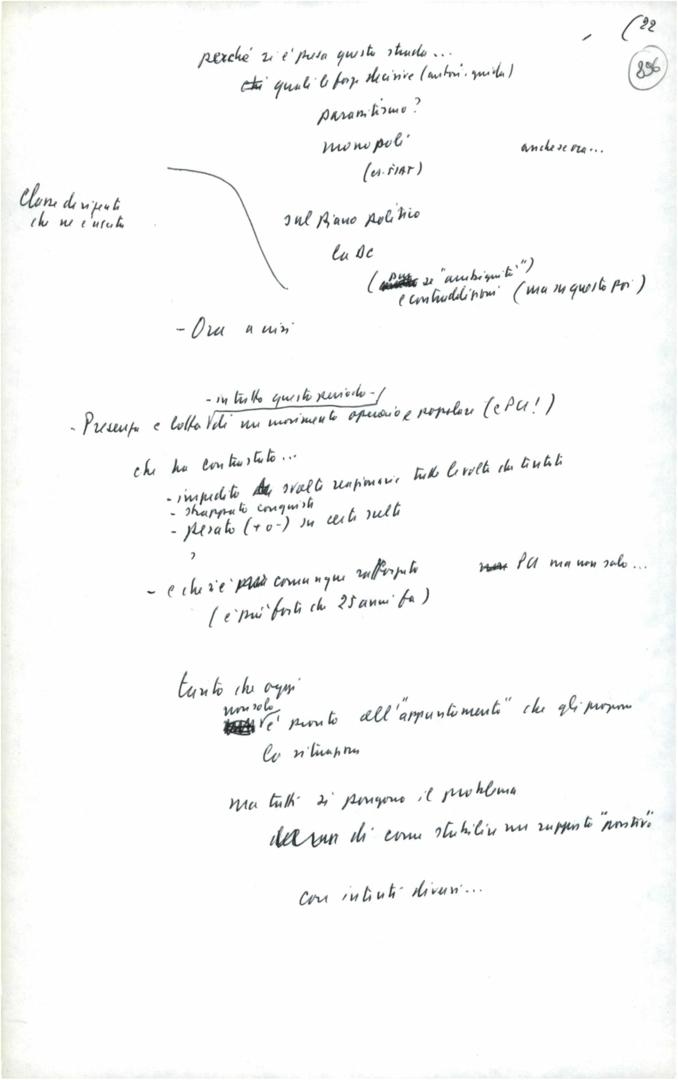 (22
896
perché si è presa questa strada...
quali le forze decisive (autori-guida)
parassitismo?
monopoli
anche se ora...
(es. FIAT)
Classe dirigente
che ne è uscita
sul piano politico
la DC
(pur se "ambiguità")
e contraddizioni (ma su questo poi)
- Ora a crisi
- in tutto questo periodo -
- Presenza e lotta di un movimento operaio e popolare (e PCI!)
che ha contrastato...
- impedito svolte reazionarie tutte le volte che tentate
- strappato conquiste
- pesato (+ o -) su certe scelte
?
- e che si è comunque rafforzato
PCI ma non solo...
(è più forte che 25 anni fa)
tanto che oggi
non solo
è pronto all'"appuntamento" che gli propone
la situazione
ma tutti si pongono il problema
di come stabilire un rapporto "positivo"
con intenti diversi...